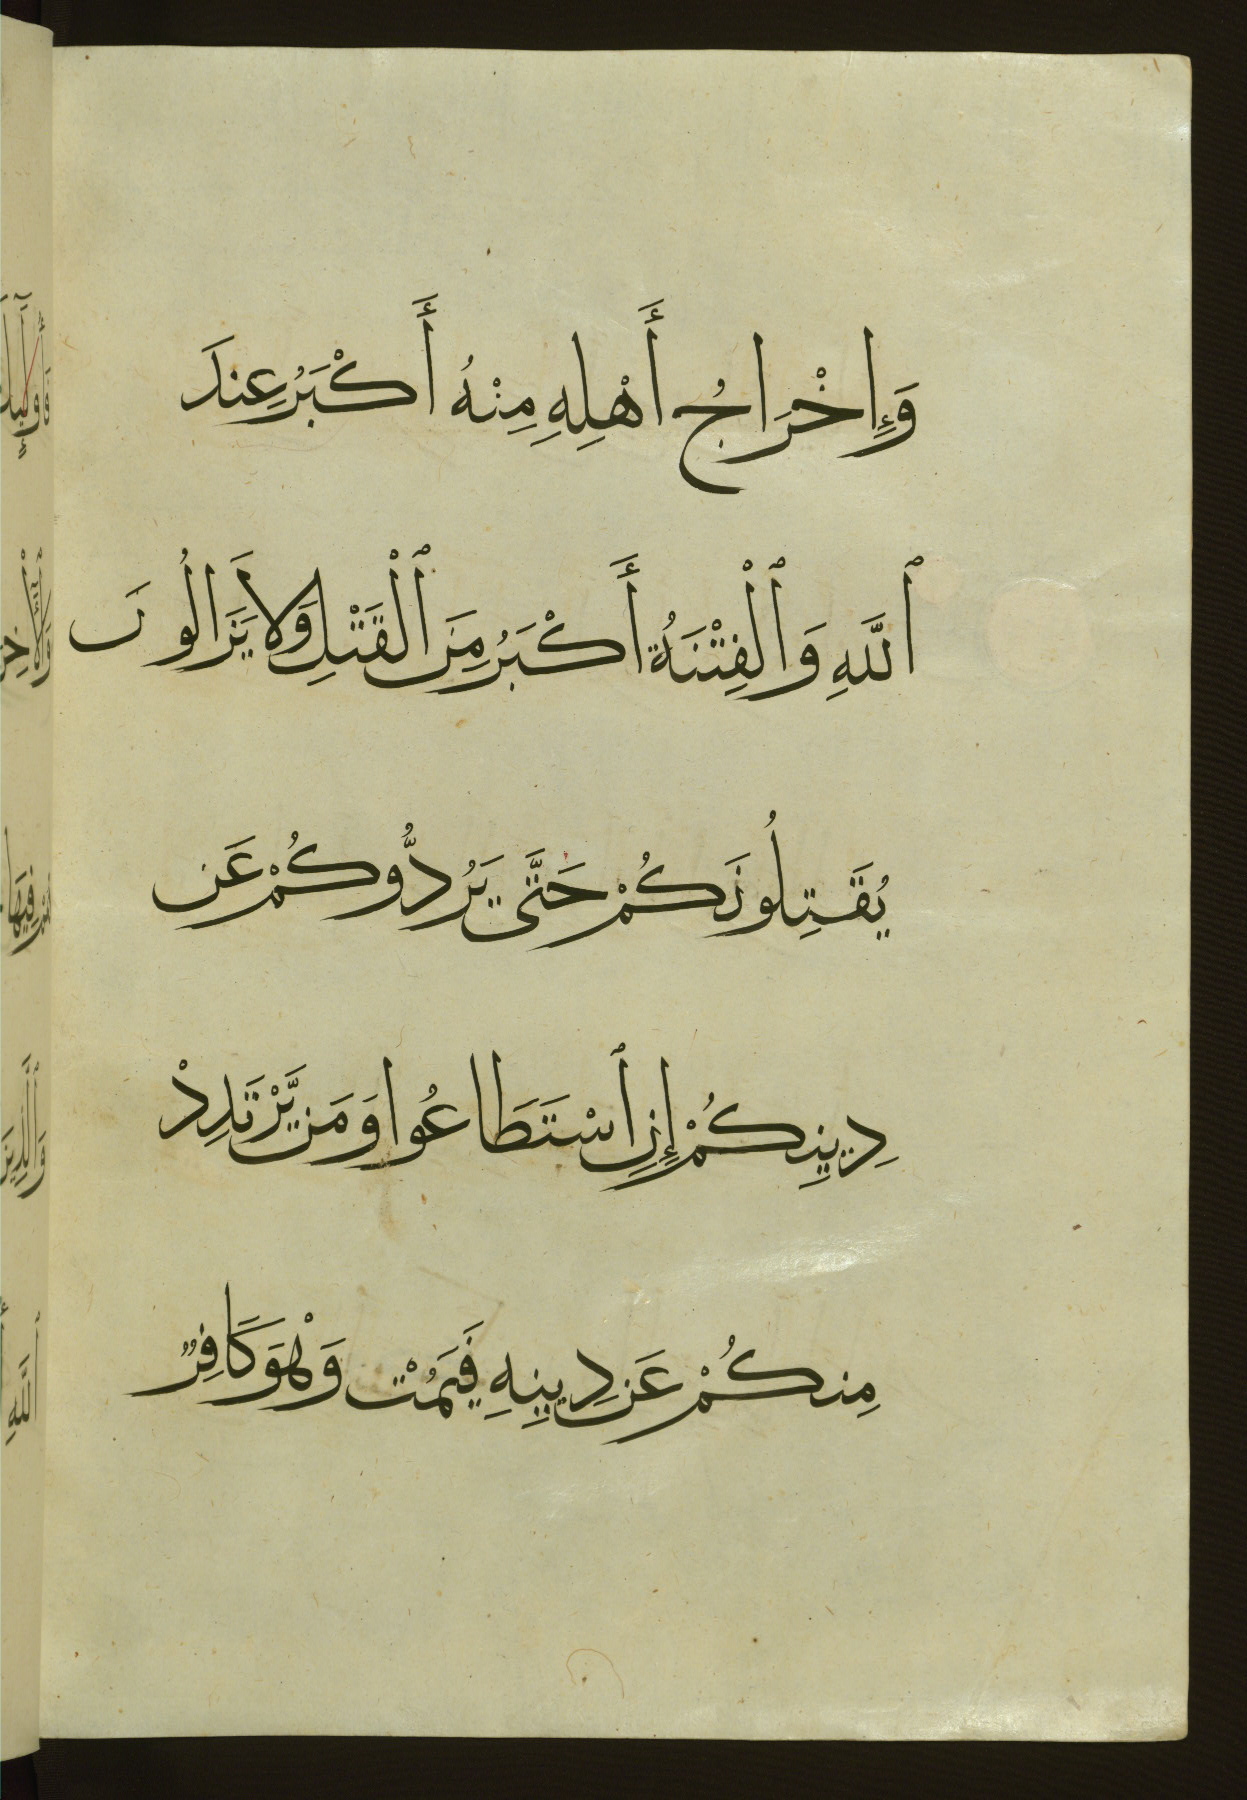 وَإِخْرَاجُ أَهْلِهِ مِنْهُ أَكْبَرُ عِندَ
ٱللَّهِ وَٱلْفِتْنَةُ أَكْبَرُ مِنَ ٱلْقَتْلِ وَلَا يَزَالُونَ
يُقَتِلُونَكُمْ حَتَّى يَرُدُّوكُمْ عَن
دِينِكُمْ إِنِ ٱسْتَطَاعُوا وَمَن يَّرْتَدِدْ
مِنكُمْ عَن دِينِهِ فَيَمُتْ وَهْوَ كَافِرٌ